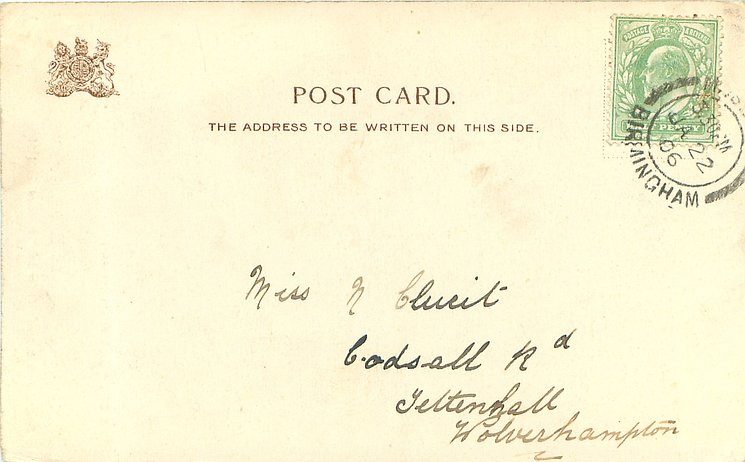 POST CARD.
THE ADDRESS TO BE WRITTEN ON THIS SIDE.
POSTAGE
PENNY
BIRMINGHAM
JA 22
06
Miss N
Codsall Rd
Tettenhall
Wolverhampton